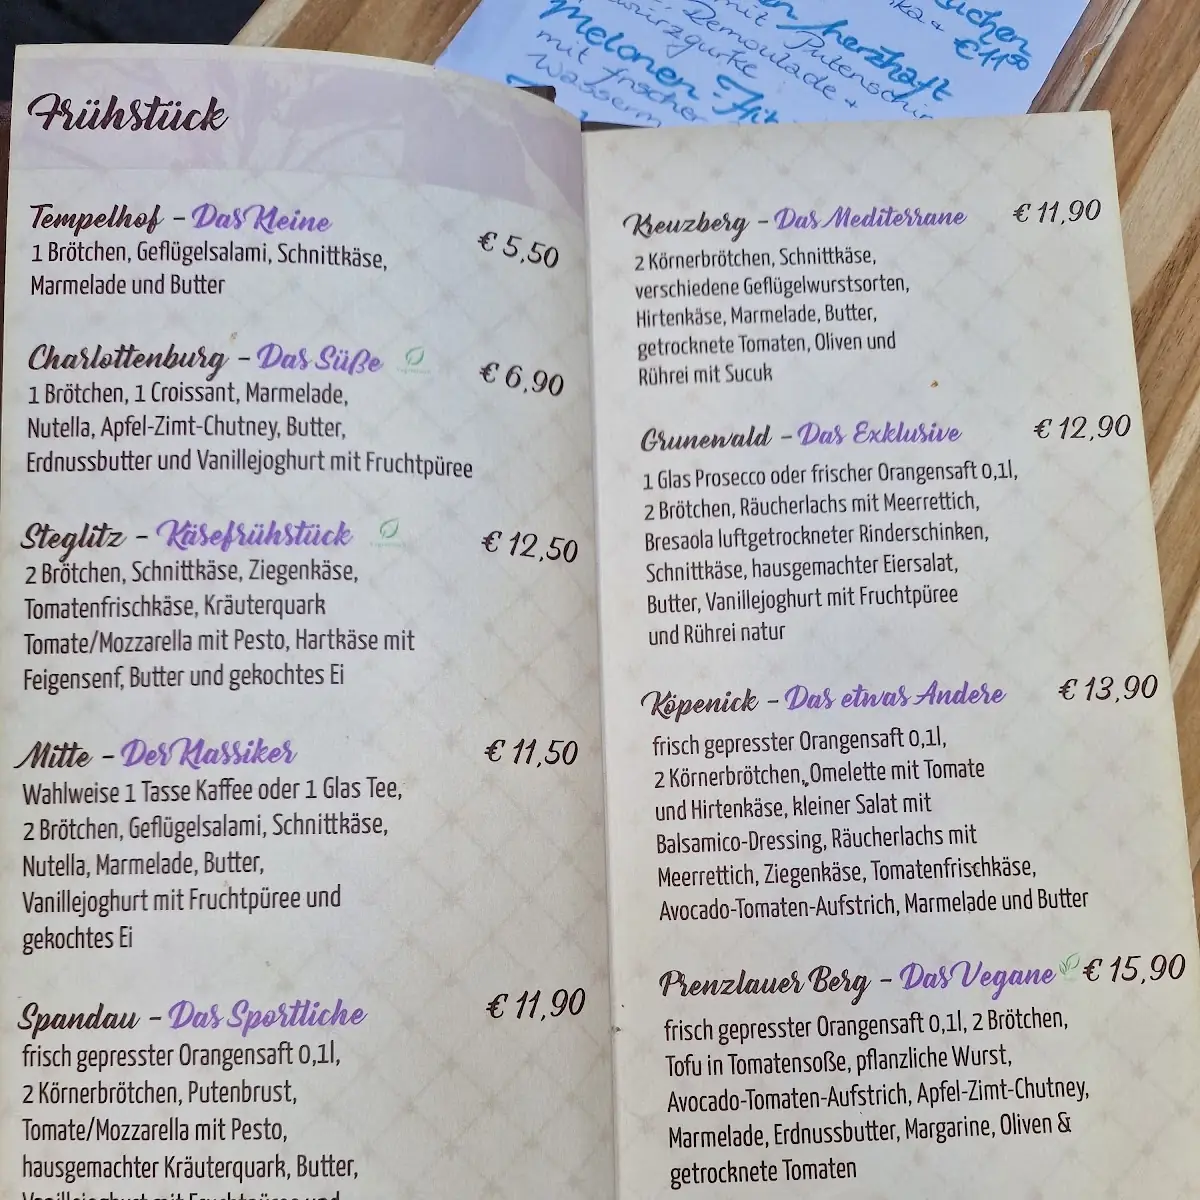 Kuchen
€ 11⁵⁰
herzhaft
mit
Putenschin
Remoulade +
würzgurke
Melonen
mit frischer
Wasserm
Frühstück
Tempelhof – Das Kleine
€ 5,50
1 Brötchen, Geflügelsalami, Schnittkäse,
Marmelade und Butter
Charlottenburg – Das Süße
€ 6,90
1 Brötchen, 1 Croissant, Marmelade,
Nutella, Apfel-Zimt-Chutney, Butter,
Erdnussbutter und Vanillejoghurt mit Fruchtpüree
Steglitz – Käsefrühstück
€ 12,50
2 Brötchen, Schnittkäse, Ziegenkäse,
Tomatenfrischkäse, Kräuterquark
Tomate/Mozzarella mit Pesto, Hartkäse mit
Feigensenf, Butter und gekochtes Ei
Mitte – Der Klassiker
€ 11,50
Wahlweise 1 Tasse Kaffee oder 1 Glas Tee,
2 Brötchen, Geflügelsalami, Schnittkäse,
Nutella, Marmelade, Butter,
Vanillejoghurt mit Fruchtpüree und
gekochtes Ei
Spandau – Das Sportliche
€ 11,90
frisch gepresster Orangensaft 0,1l,
2 Körnerbrötchen, Putenbrust,
Tomate/Mozzarella mit Pesto,
hausgemachter Kräuterquark, Butter,
Vanillejoghurt mit Fruchtpüree und
Kreuzberg – Das Mediterrane
€ 11,90
2 Körnerbrötchen, Schnittkäse,
verschiedene Geflügelwurstsorten,
Hirtenkäse, Marmelade, Butter,
getrocknete Tomaten, Oliven und
Rührei mit Sucuk
Grunewald – Das Exklusive
€ 12,90
1 Glas Prosecco oder frischer Orangensaft 0,1l,
2 Brötchen, Räucherlachs mit Meerrettich,
Bresaola luftgetrockneter Rinderschinken,
Schnittkäse, hausgemachter Eiersalat,
Butter, Vanillejoghurt mit Fruchtpüree
und Rührei natur
Köpenick – Das etwas Andere
€ 13,90
frisch gepresster Orangensaft 0,1l,
2 Körnerbrötchen, Omelette mit Tomate
und Hirtenkäse, kleiner Salat mit
Balsamico-Dressing, Räucherlachs mit
Meerrettich, Ziegenkäse, Tomatenfrischkäse,
Avocado-Tomaten-Aufstrich, Marmelade und Butter
Prenzlauer Berg – Das Vegane
€ 15,90
frisch gepresster Orangensaft 0,1l, 2 Brötchen,
Tofu in Tomatensoße, pflanzliche Wurst,
Avocado-Tomaten-Aufstrich, Apfel-Zimt-Chutney,
Marmelade, Erdnussbutter, Margarine, Oliven &
getrocknete Tomaten